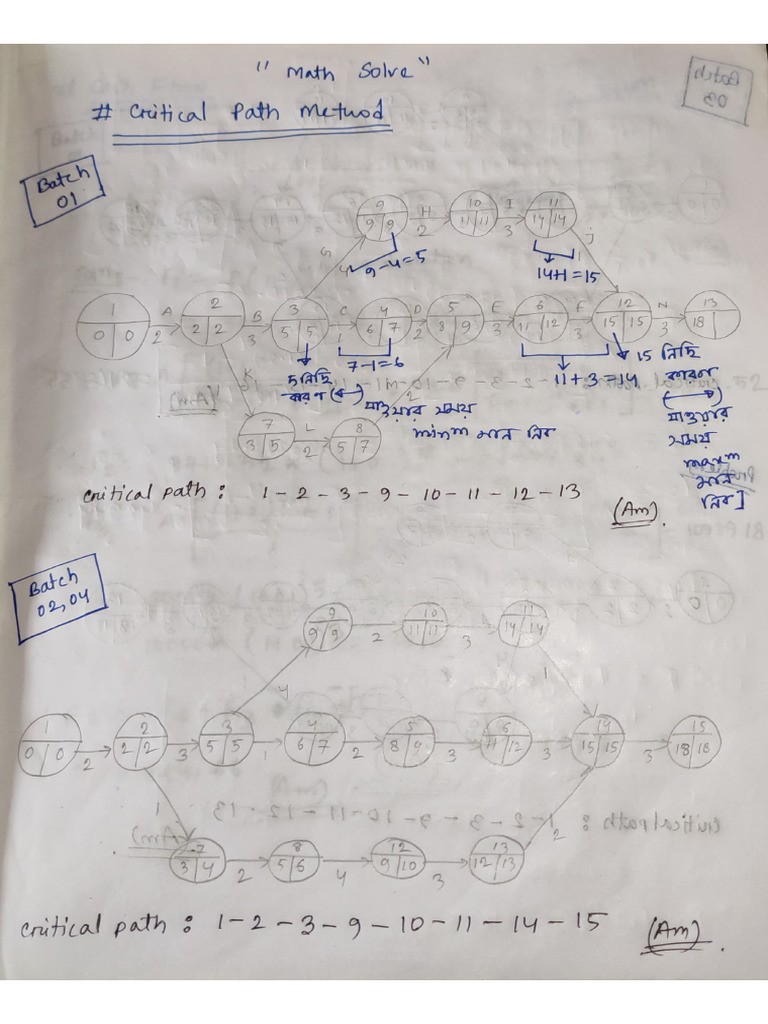 "Math Solve"
# Critical Path Method
Batch
01
9
9 9
H
2
10
11 11
I
3
11
14 14
G
4
j
1
9-4=5
14+1=15
1
0 0
A
2
2
2 2
B
3
3
5 5
C
1
4
6 7
D
2
5
8 9
E
3
6
11 12
F
3
12
15 15
N
3
13
18
7-1=6
11+3=14
5 নিছি
কারণ (←)
যাওয়ার সময়
minm মান নিব
15 নিছি
কারণ
(→)
যাওয়ার
সময়
maxm
মান
নিব]
K
1
7
3 5
L
2
8
5 7
2
critical path : 1-2-3-9-10-11-12-13
(Am).
Batch
02,04
9
9 9
2
10
11 11
3
11
14 14
4
1
1
0 0
2
2
2 2
3
3
5 5
1
4
6 7
2
5
8 9
3
6
11 12
3
14
15 15
3
15
18 18
1
7
3 4
2
8
5 6
4
12
9 10
3
13
12 13
2
critical path : 1-2-3-9-10-11-14-15
(Am).